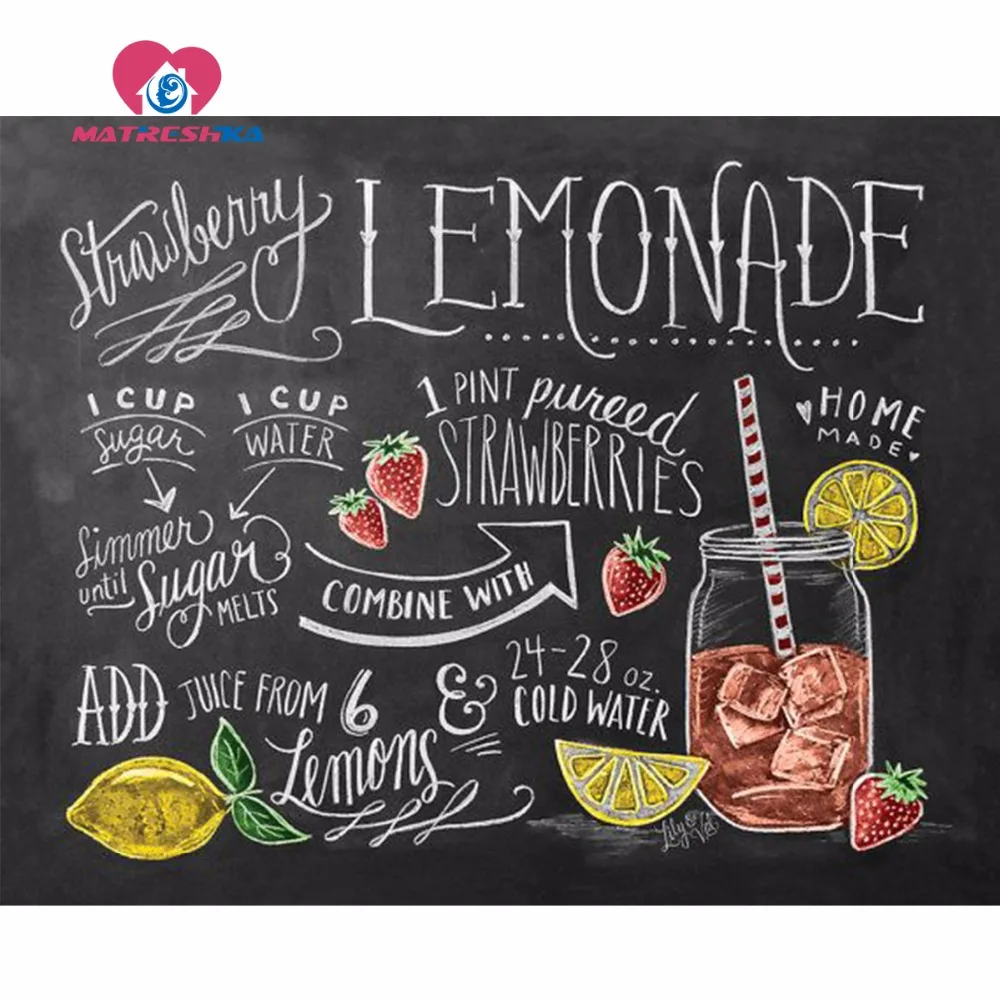 MATRESHKA
Strawberry LEMONADE
1 CUP Sugar
1 CUP WATER
Simmer
until Sugar
MELTS
COMBINE WITH
1 PINT pureed
STRAWBERRIES
HOME
MADE
ADD JUICE FROM 6
Lemons
& 24-28 oz.
COLD WATER
Lily & Val